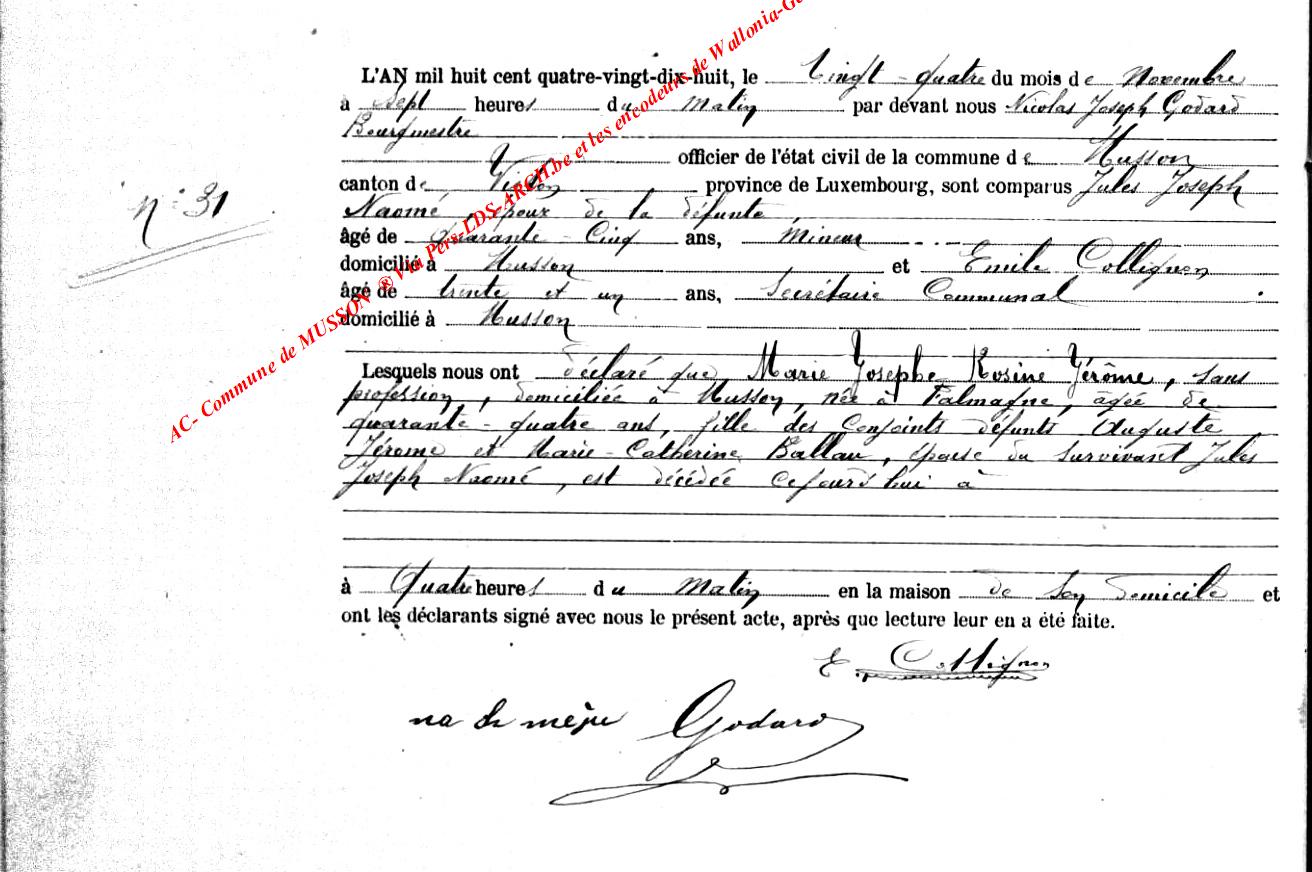 L'AN mil huit cent quatre-vingt-dix-huit, le Vingt-quatre du mois de Novembre
à Sept heures du Matin par devant nous Nicolas Joseph Godard
Bourgmestre
officier de l'état civil de la commune de Musson
N° 31
canton de Virton province de Luxembourg, sont comparus Jules Joseph
Naomé, époux de la défunte,
âgé de Quarante-Cinq ans, Mineur
domicilié à Musson et Emile Collignon
âgé de trente et un ans, Secrétaire Communal
domicilié à Musson
Lesquels nous ont déclaré que Marie Josephe Rosine Jérôme, sans
profession, domiciliée à Musson, née à Falmagne, âgée de
quarante-quatre ans, fille des Conjoints défunts Auguste
Jérome et Marie-Catherine Ballau, épouse du Survivant Jules
Joseph Naomé, est décédée cejourd'hui à
à Quatre heures du Matin en la maison de son domicile et
ont les déclarants signé avec nous le présent acte, après que lecture leur en a été faite.
E. Collignon
Godard
AC- Commune de MUSSON ® Via Pers-LDS-ARCH.be et les encodeurs de Wallonia-Ge